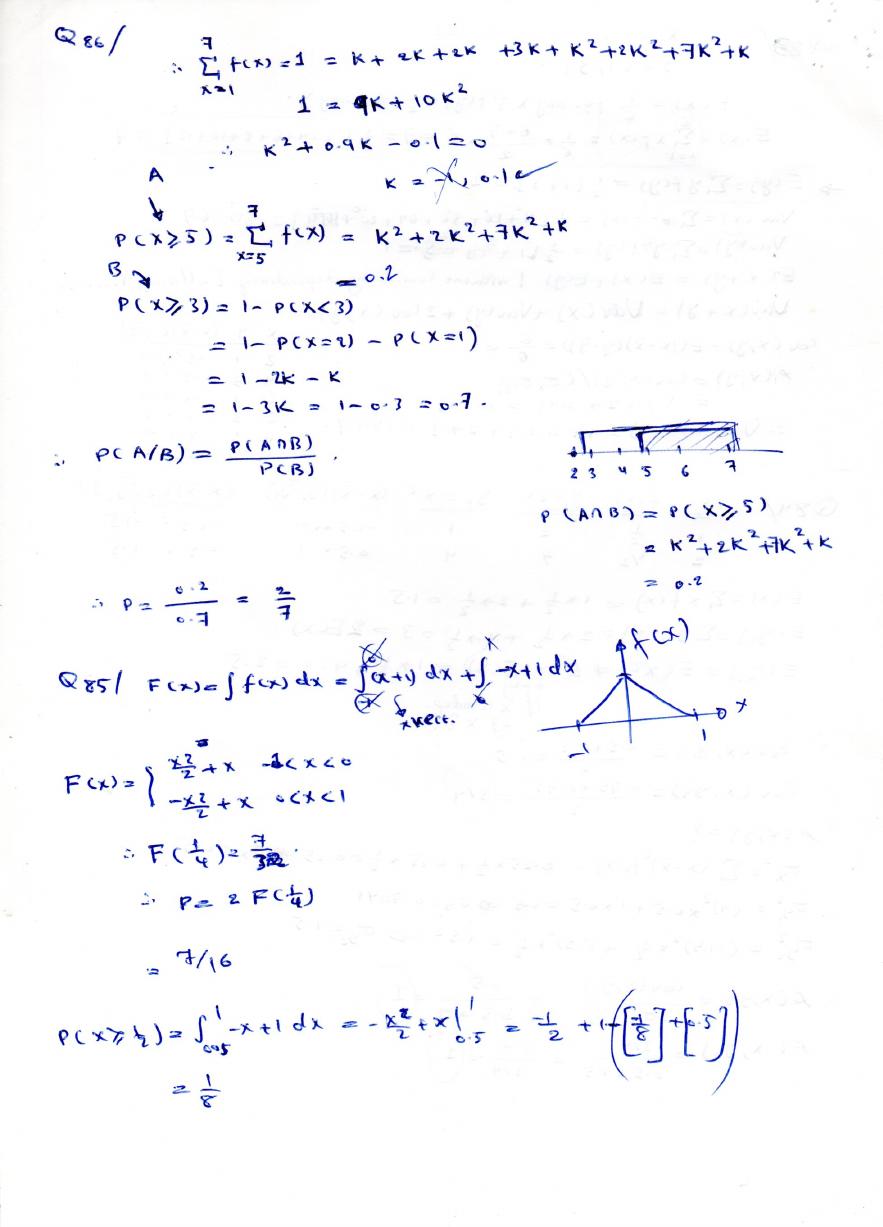 Q 86/
∴ 7 Σ x=1 f(x) = 1 = K + 2K + 2K + 3K + K² + 2K² + 7K² + K
1 = 9K + 10K²
∴ K² + 0.9K - 0.1 = 0
K = -1, 0.1
A
P(X≥5) = 7 Σ x=5 f(x) = K² + 2K² + 7K² + K
= 0.2
B
P(X≥3) = 1 - P(X<3)
= 1 - P(X=2) - P(X=1)
= 1 - 2K - K
= 1 - 3K = 1 - 0.3 = 0.7.
∴ P(A/B) = P(A∩B) / P(B).
2 3 4 5 6 7
P(A∩B) = P(X≥5)
= K² + 2K² + 7K² + K
= 0.2
∴ P = 0.2 / 0.7 = 2/7
Q 85/ F(x) = ∫ f(x) dx = ∫ (x+1) dx + ∫ -x+1 dx
f(x)
x
-1 1
F(x) = { x²/2 + x -1<x<0
-x²/2 + x 0<x<1
∴ F(1/4) = 7/32.
∴ P = 2 F(1/4)
= 7/16
P(X≥1/2) = ∫ 0.5 1 -x+1 dx = -x²/2 + x | 0.5 1 = -1/2 + 1 - ([-1/8] + [0.5])
= 1/8